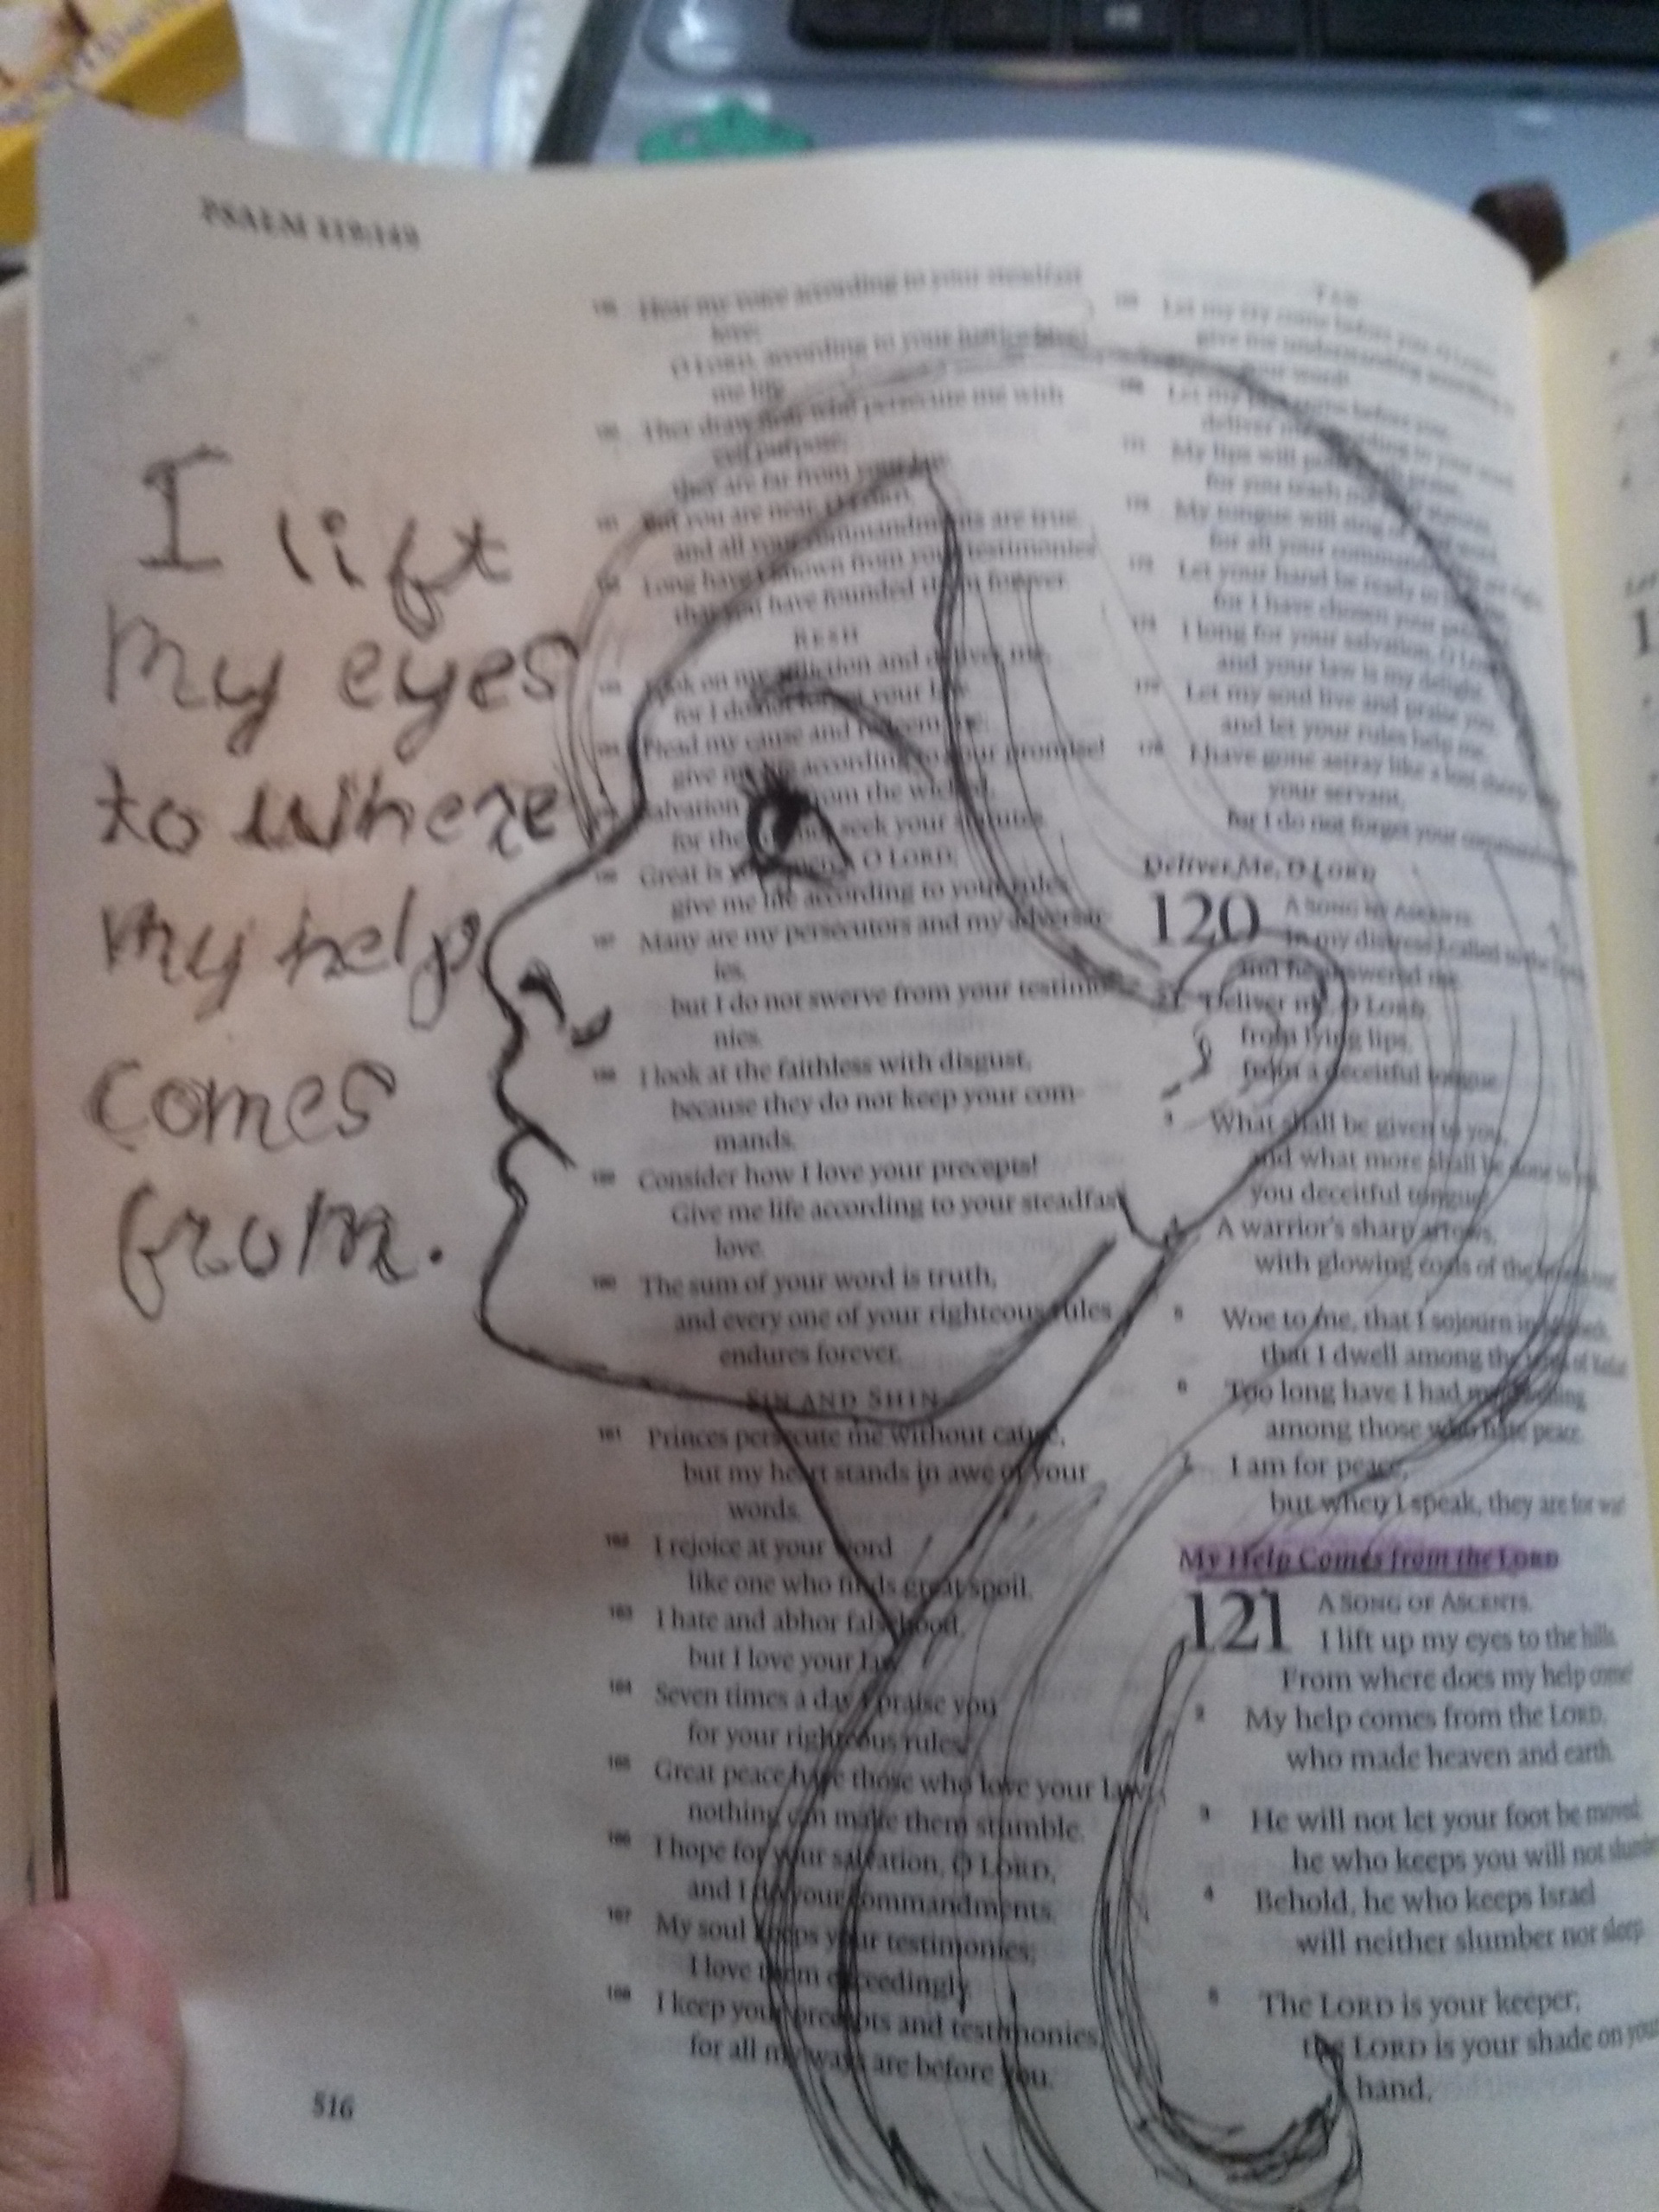 PSALM 119:149
I lift
my eyes
to where
my help
comes
from.
Hear my voice according to your steadfast
love;
O LORD, according to your justice give
me life.
They draw near who persecute me with
evil purpose;
they are far from your law.
But you are near, O LORD,
and all your commandments are true.
Long have I known from your testimonies
that you have founded them forever.
RESH
Look on my affliction and deliver me,
for I do not forget your law.
Plead my cause and redeem me;
give me life according to your promise!
Salvation from the wicked,
for they seek your statutes.
Great is your O LORD;
give me life according to your rules.
Many are my persecutors and my adversar-
ies,
but I do not swerve from your testimo-
nies.
158 I look at the faithless with disgust,
because they do not keep your com-
mands.
159 Consider how I love your precepts!
Give me life according to your steadfast
love.
160 The sum of your word is truth,
and every one of your righteous rules
endures forever.
SIN AND SHIN
161 Princes persecute me without cause,
but my heart stands in awe of your
words.
162 I rejoice at your word
like one who finds great spoil.
163 I hate and abhor falsehood,
but I love your law.
164 Seven times a day I praise you
for your righteous rules.
165 Great peace have those who love your law;
nothing can make them stumble.
166 I hope for your salvation, O LORD,
and I do your commandments.
167 My soul keeps your testimonies;
I love them exceedingly.
168 I keep your precepts and testimonies,
for all my ways are before you.
516
TAW
Let my cry come before you, O LORD;
give me understanding according to
your word!
Let my come before you;
deliver me according to your word.
My lips will praise,
for you teach me your statutes.
My tongue will sing of your word,
for all your commandments are right.
Let your hand be ready to
for I have chosen your precepts.
174 I long for your salvation, O LORD,
and your law is my delight.
175 Let my soul live and praise you,
and let your rules help me.
176 I have gone astray like a lost sheep;
your servant,
for I do not forget your commandments.
Deliver Me, O LORD
120 A SONG OF ASCENTS.
In my distress I called to the
and he answered me.
2 Deliver me, O LORD,
from lying lips,
from a deceitful tongue.
3 What shall be given to you,
and what more shall be done to
you deceitful tongue?
4 A warrior's sharp arrows,
with glowing coals of the
5 Woe to me, that I sojourn in
that I dwell among the of
6 Too long have I had my dwelling
among those who hate peace.
7 I am for peace,
but when I speak, they are for war!
My Help Comes from the LORD
121 A SONG OF ASCENTS.
I lift up my eyes to the hills.
From where does my help come?
2 My help comes from the LORD,
who made heaven and earth.
3 He will not let your foot be moved;
he who keeps you will not
4 Behold, he who keeps Israel
will neither slumber nor sleep.
5 The LORD is your keeper;
the LORD is your shade on your
hand.